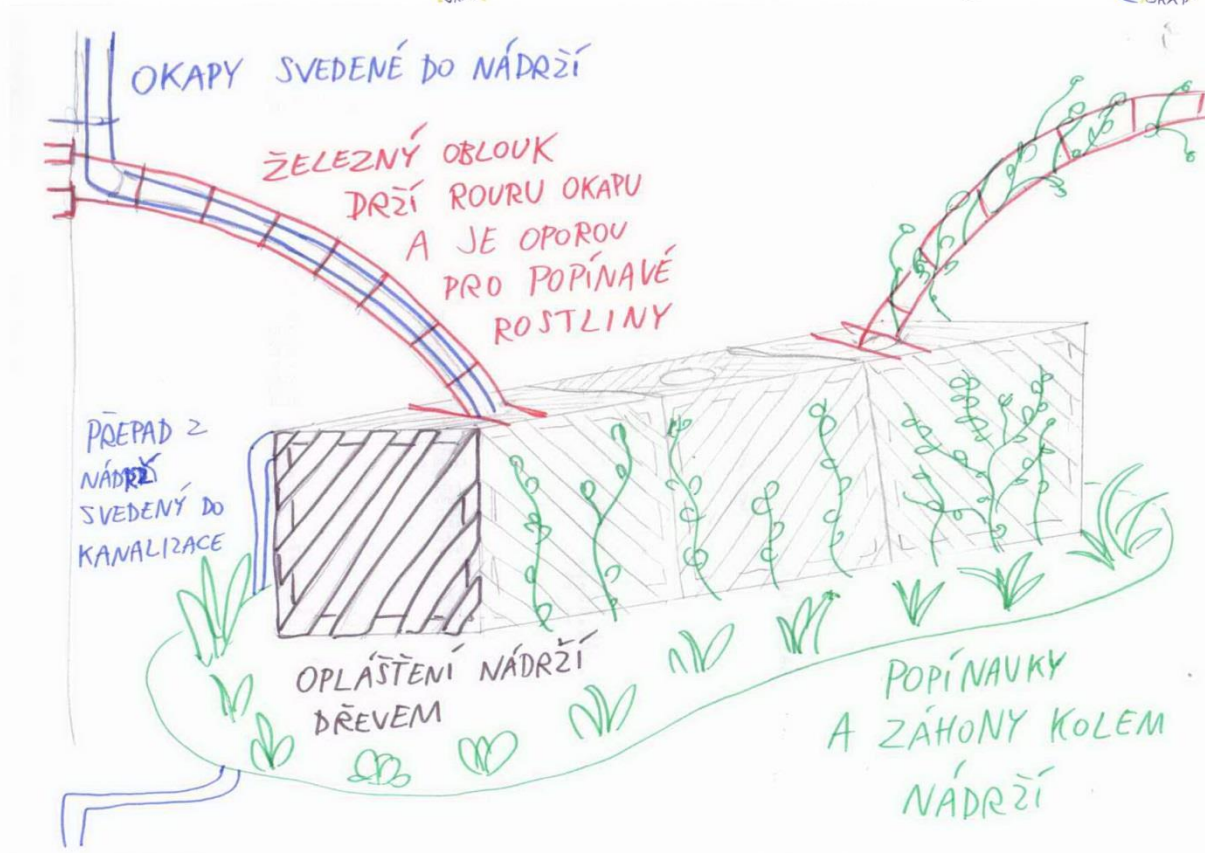 OKAPY SVEDENÉ DO NÁDRŽÍ
ŽELEZNÝ OBLOUK
DRŽÍ ROURU OKAPU
A JE OPOROU
PRO POPÍNAVÉ
ROSTLINY
PŘEPAD Z
NÁDRŽÍ
SVEDENÝ DO
KANALIZACE
OPLÁŠTĚNÍ NÁDRŽÍ
DŘEVEM
POPÍNAVKY
A ZÁHONY KOLEM
NÁDRŽÍ